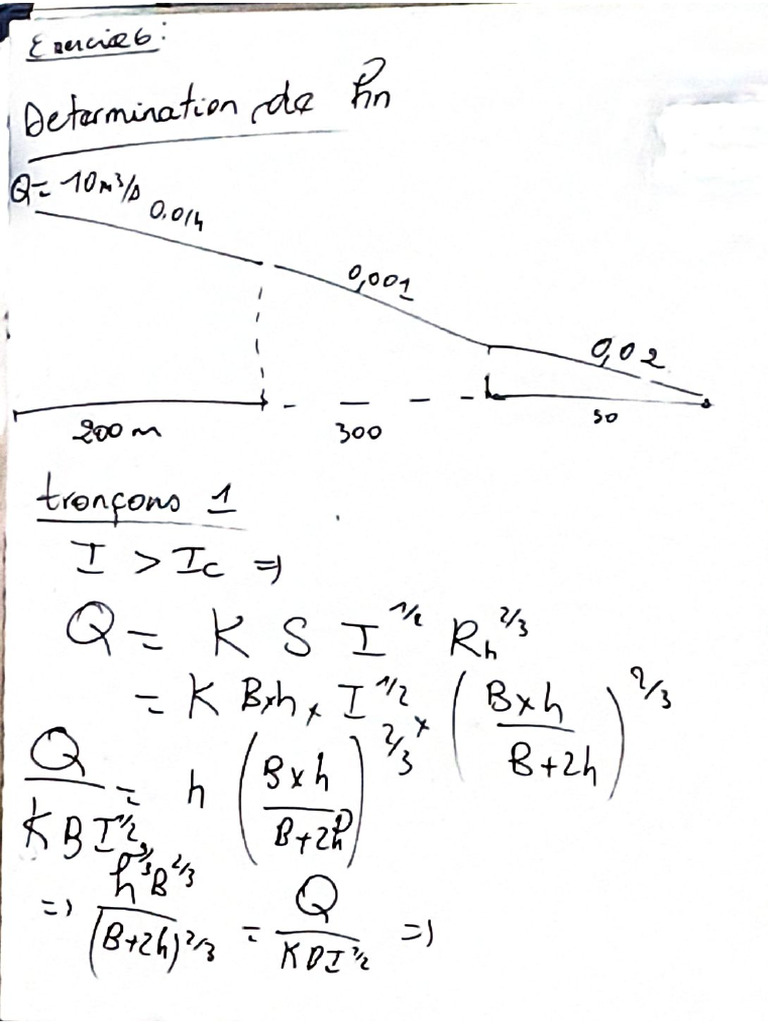 Exercice 6:
Determination de hn
Q= 10 m³/s
0.014
0,001
0,02
200 m
300
50
tronçons 1
I > Ic ⇒
Q = K S I^1/2 Rh^2/3
= K B×h × I^1/2 × (B×h / B+2h)^2/3
Q / K B I^1/2 = h (B×h / B+2h)^2/3
=> h^5/3 B^2/3 / (B+2h)^2/3 = Q / K B I^1/2 =>